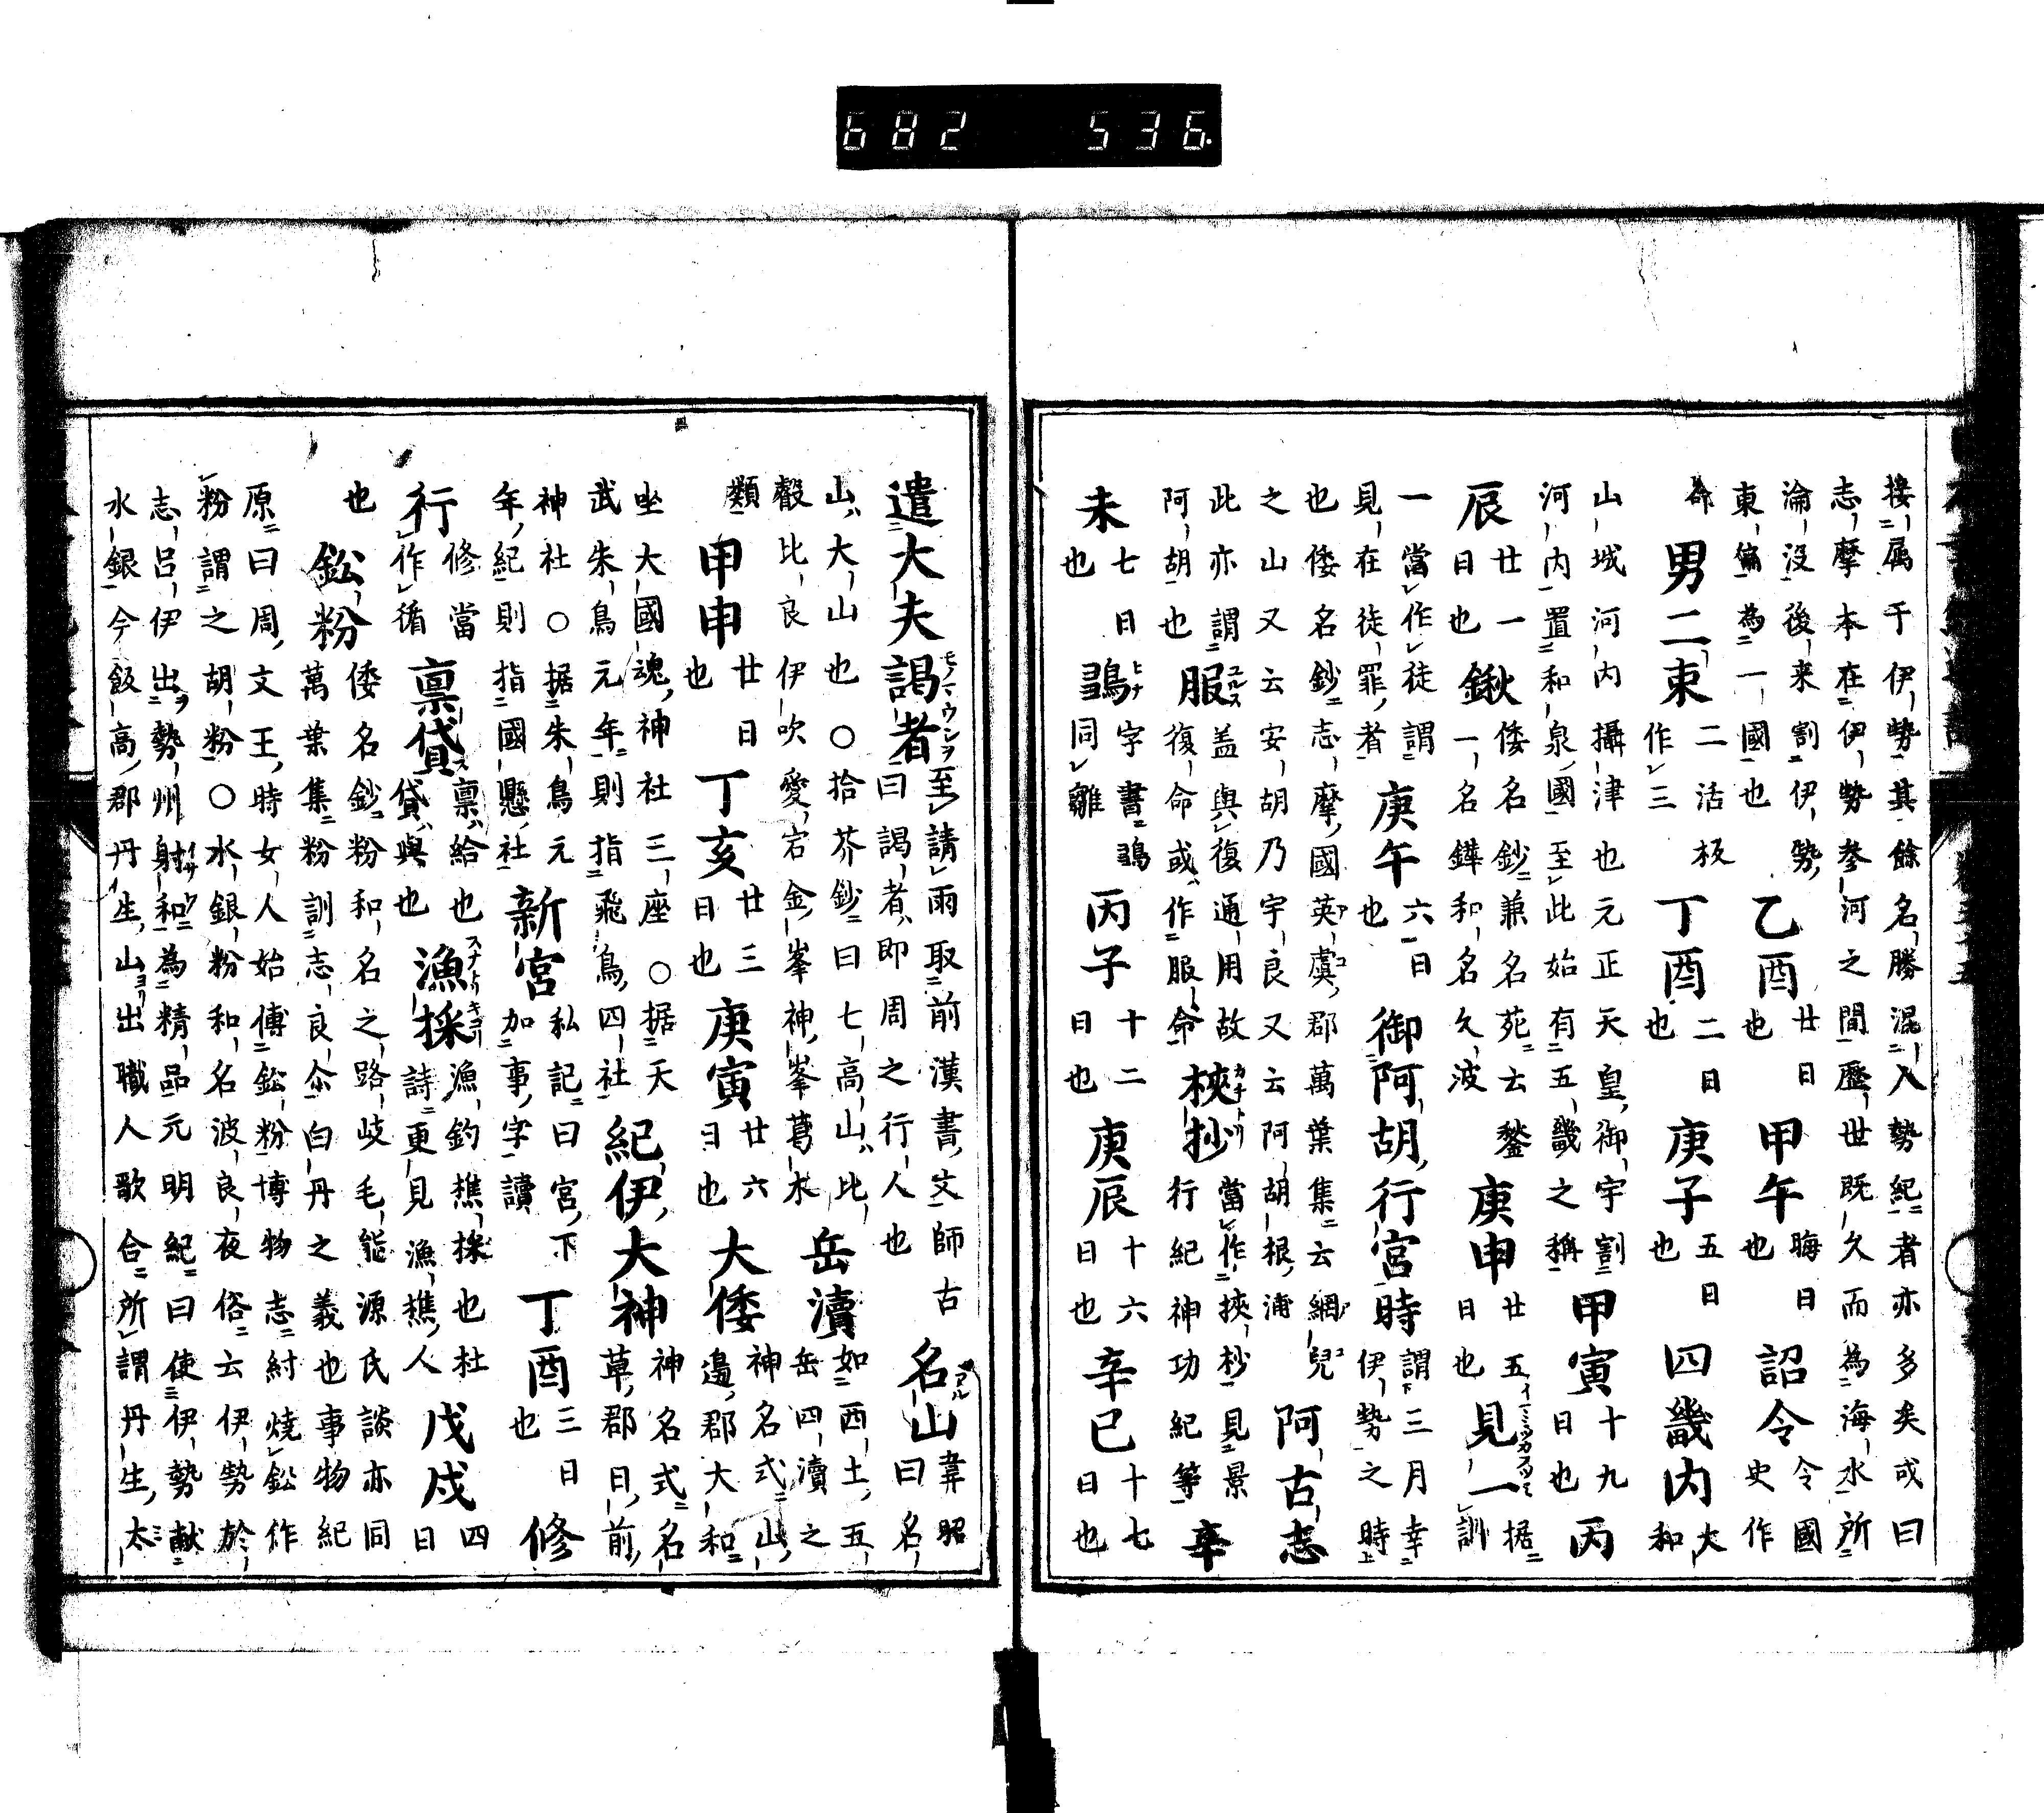 682 536.
接属于伊勢其餘名勝混入勢紀者亦多矣或曰
志摩本在伊勢参河之間歷世既久而為海水所
淪没後来割伊勢東偏為一國也乙酉廿日也甲午晦日也詔令令國史作
命男二東二活板作三丁酉二日也庚子五日也四畿内大和
山城河内攝津也元正天皇御宇割河内置和泉國至此始有五畿之稱甲寅十九日也丙
辰廿一日也鍬倭名鈔兼名苑云鍫一名鏵和名久波庚申廿五日也見一据訓
一當作徒謂見在徒罪者庚午六日也御阿胡行宮時謂三月幸伊勢之時
也倭名鈔志摩國英虞郡萬葉集云網兒之山又云安胡乃宇良又云阿胡根浦阿古志
此亦謂阿胡也服盖與復通用故復命或作服命挾抄當作挾杪見景行紀神功紀等辛
未七日也鵶字書鵶同雛丙子十二日也庚辰十六日也辛巳十七日也
遣大夫謁者至請雨取前漢書文師古曰謁者即周之行人也名山韋昭曰名
山大山也○拾芥鈔曰七高山比叡比良伊吹愛宕金峯神峯葛木岳瀆如西土五岳四瀆之
類甲申廿日也丁亥廿三日也庚寅廿六日也大倭神名式山邊郡大和
坐大國魂神社三座○据天武朱鳥元年則指飛鳥四社紀伊大神神名式名草郡日前
神社○据朱鳥元年紀則指國懸社新宮私記曰宮下加事字讀丁酉三日也修
行修當作循稟貸稟給也貸與也漁採漁釣樵採也杜詩更見漁樵人戊戌四日
也鈆粉倭名鈔粉和名之路岐毛能源氏談亦同萬葉集粉訓志良尒白丹之義也事物紀
原曰周文王時女人始傅鈆粉博物志紂燒鈆作
粉謂之胡粉○水銀粉和名波良夜俗云伊勢於
志呂伊出勢州射和為精品元明紀曰使伊勢献
水銀今飯高郡丹生山出職人歌合所謂丹生太